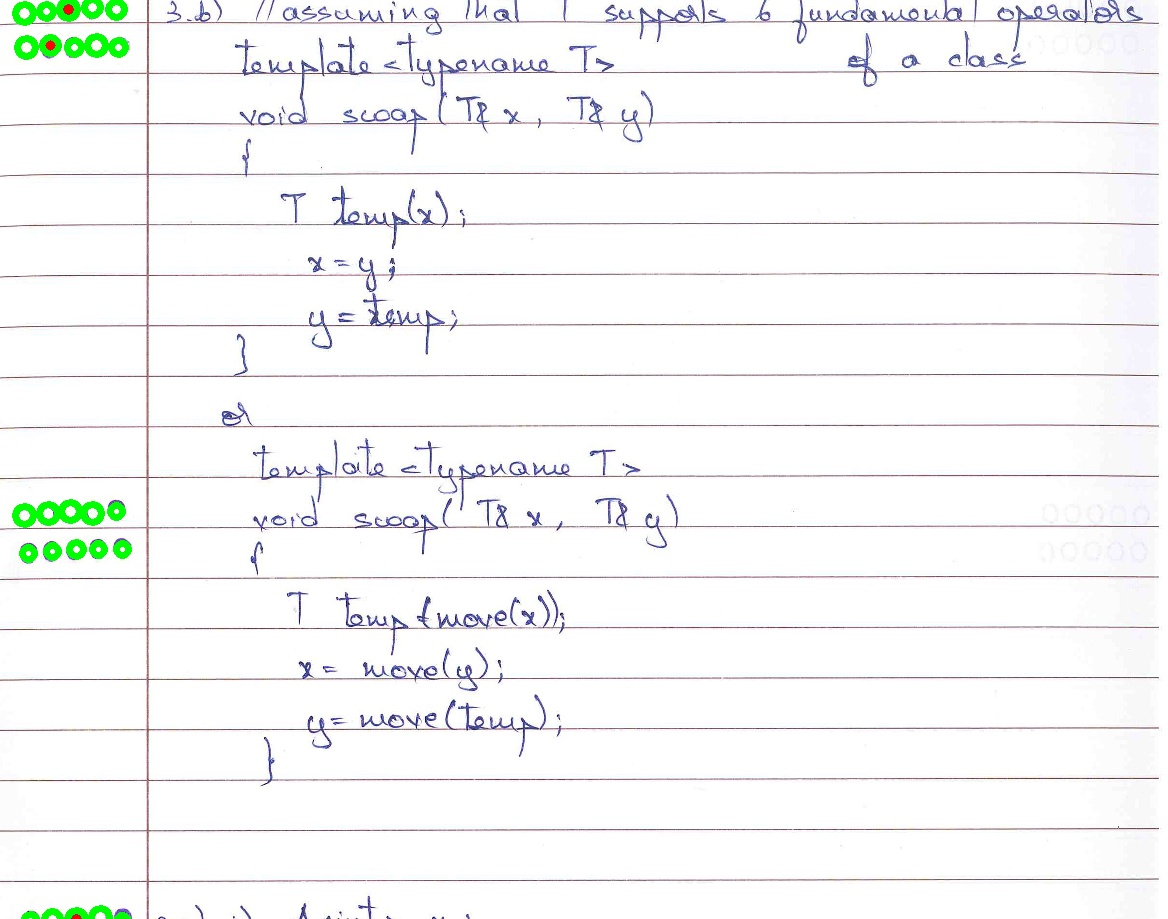 3.b) // assuming that T supports 6 fundamental operators
of a class
template <typename T>
void swap(T& x, T& y)
{
T temp(x);
x = y;
y = temp;
}
or
template <typename T>
void swap(T& x, T& y)
{
T temp(move(x));
x = move(y);
y = move(temp);
}